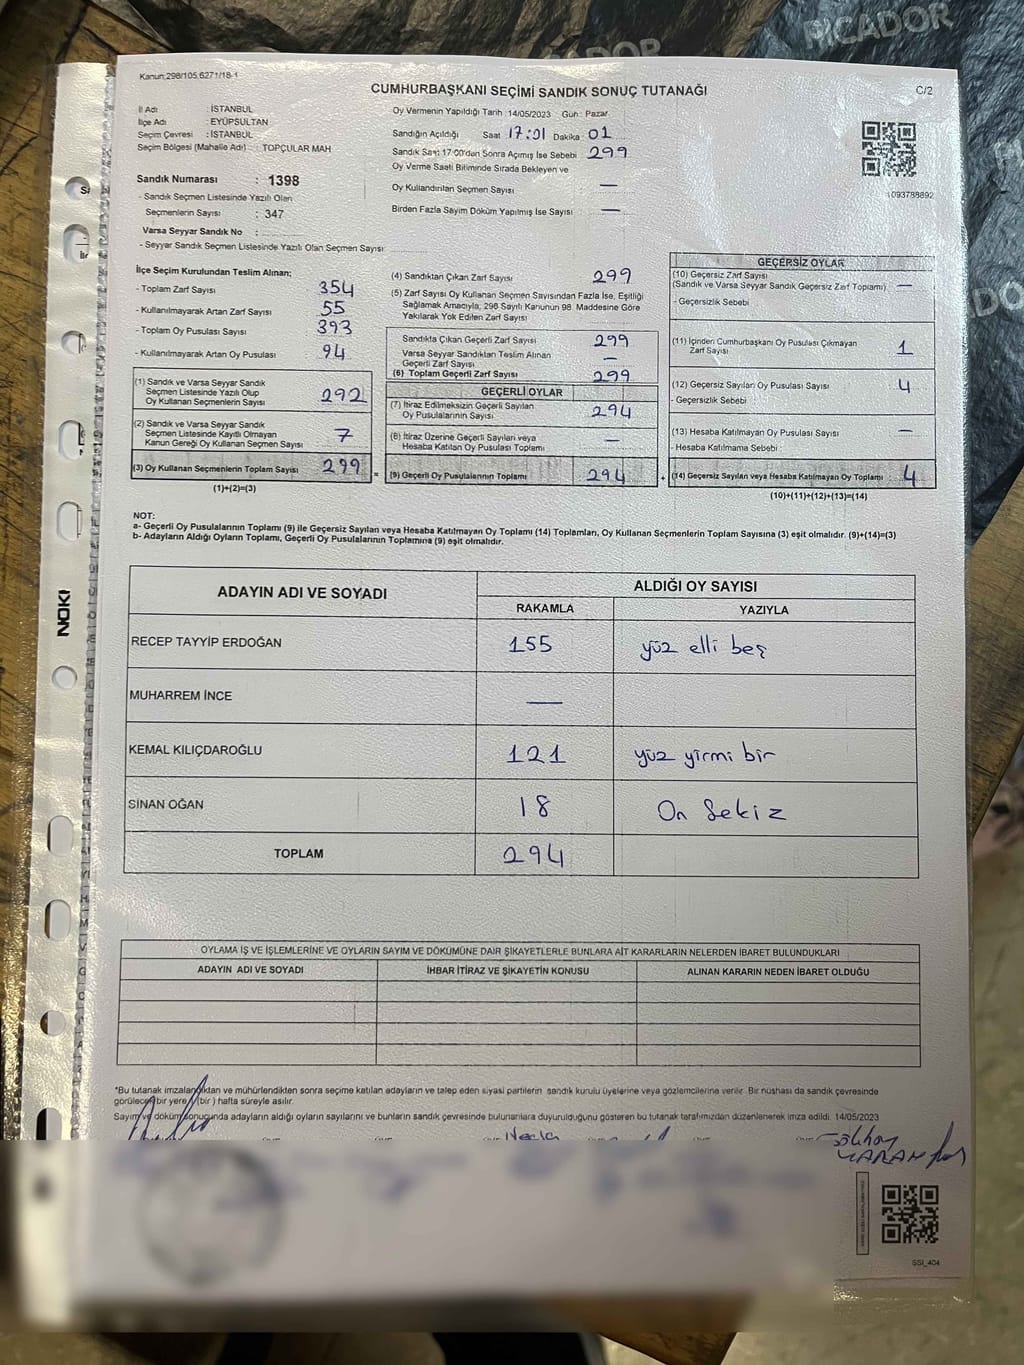 PICADOR
Kanun:298/105,6271/18-1
CUMHURBAŞKANI SEÇİMİ SANDIK SONUÇ TUTANAĞI
C/2
İl Adı : İSTANBUL
İlçe Adı : EYÜPSULTAN
Seçim Çevresi : İSTANBUL
Seçim Bölgesi (Mahalle Adı) : TOPÇULAR MAH
Oy Vermenin Yapıldığı Tarih 14/05/2023 Gün: Pazar
Sandığın Açıldığı Saat 17:01 Dakika 01
Sandık Saat 17:00'den Sonra Açılmış İse Sebebi 299
Oy Verme Saati Bitiminde Sırada Bekleyen ve
Oy Kullandırılan Seçmen Sayısı —
Birden Fazla Sayım Döküm Yapılmış İse Sayısı —
1093788892
Sandık Numarası : 1398
- Sandık Seçmen Listesinde Yazılı Olan
Seçmenlerin Sayısı : 347
Varsa Seyyar Sandık No :
- Seyyar Sandık Seçmen Listesinde Yazılı Olan Seçmen Sayısı:
İlçe Seçim Kurulundan Teslim Alınan;
- Toplam Zarf Sayısı 354
- Kullanılmayarak Artan Zarf Sayısı 55
- Toplam Oy Pusulası Sayısı 393
- Kullanılmayarak Artan Oy Pusulası 94
(1) Sandık ve Varsa Seyyar Sandık
Seçmen Listesinde Yazılı Olup
Oy Kullanan Seçmenlerin Sayısı 292
(2) Sandık ve Varsa Seyyar Sandık
Seçmen Listesinde Kayıtlı Olmayan
Kanun Gereği Oy Kullanan Seçmen Sayısı 7
(3) Oy Kullanan Seçmenlerin Toplam Sayısı 299 =
(1)+(2)=(3)
(4) Sandıktan Çıkan Zarf Sayısı 299
(5) Zarf Sayısı Oy Kullanan Seçmen Sayısından Fazla İse, Eşitliği
Sağlamak Amacıyla, 298 Sayılı Kanunun 98. Maddesine Göre
Yakılarak Yok Edilen Zarf Sayısı
Sandıkta Çıkan Geçerli Zarf Sayısı 299
Varsa Seyyar Sandıktan Teslim Alınan
Geçerli Zarf Sayısı —
(6) Toplam Geçerli Zarf Sayısı 299
GEÇERLİ OYLAR
(7) İtiraz Edilmeksizin Geçerli Sayılan
Oy Pusulalarının Sayısı 294
(8) İtiraz Üzerine Geçerli Sayılan veya
Hesaba Katılan Oy Pusulası Toplamı —
(9) Geçerli Oy Pusulalarının Toplamı 294 +
GEÇERSİZ OYLAR
(10) Geçersiz Zarf Sayısı
(Sandık ve Varsa Seyyar Sandık Geçersiz Zarf Toplamı) —
- Geçersizlik Sebebi
(11) İçinden Cumhurbaşkanı Oy Pusulası Çıkmayan
Zarf Sayısı 1
(12) Geçersiz Sayılan Oy Pusulası Sayısı 4
- Geçersizlik Sebebi
(13) Hesaba Katılmayan Oy Pusulası Sayısı —
- Hesaba Katılmama Sebebi :
(14) Geçersiz Sayılan veya Hesaba Katılmayan Oy Toplamı : 4
(10)+(11)+(12)+(13)=(14)
NOT:
a- Geçerli Oy Pusulalarının Toplamı (9) ile Geçersiz Sayılan veya Hesaba Katılmayan Oy Toplamı (14) Toplamları, Oy Kullanan Seçmenlerin Toplam Sayısına (3) eşit olmalıdır. (9)+(14)=(3)
b- Adayların Aldığı Oyların Toplamı, Geçerli Oy Pusulalarının Toplamına (9) eşit olmalıdır.
ADAYIN ADI VE SOYADI
ALDIĞI OY SAYISI
RAKAMLA YAZIYLA
RECEP TAYYİP ERDOĞAN 155 yüz elli beş
MUHARREM İNCE —
KEMAL KILIÇDAROĞLU 121 yüz yirmi bir
SİNAN OĞAN 18 On Sekiz
TOPLAM 294
NOKI
OYLAMA İŞ VE İŞLEMLERİNE VE OYLARIN SAYIM VE DÖKÜMÜNE DAİR ŞİKAYETLERLE BUNLARA AİT KARARLARIN NELERDEN İBARET BULUNDUKLARI
ADAYIN ADI VE SOYADI İHBAR İTİRAZ VE ŞİKAYETİN KONUSU ALINAN KARARIN NEDEN İBARET OLDUĞU
*Bu tutanak imzalandıktan ve mühürlendikten sonra seçime katılan adayların ve talep eden siyasi partilerin sandık kurulu üyelerine veya gözlemcilerine verilir. Bir nüshası da sandık çevresinde
görülecek bir yere (bir) hafta süreyle asılır.
Sayım ve döküm sonucunda adayların aldığı oyların sayılarını ve bunların sandık çevresinde bulunanlara duyurulduğunu gösteren bu tutanak tarafımızdan düzenlenerek imza edildi. 14/05/2023
SSI_404